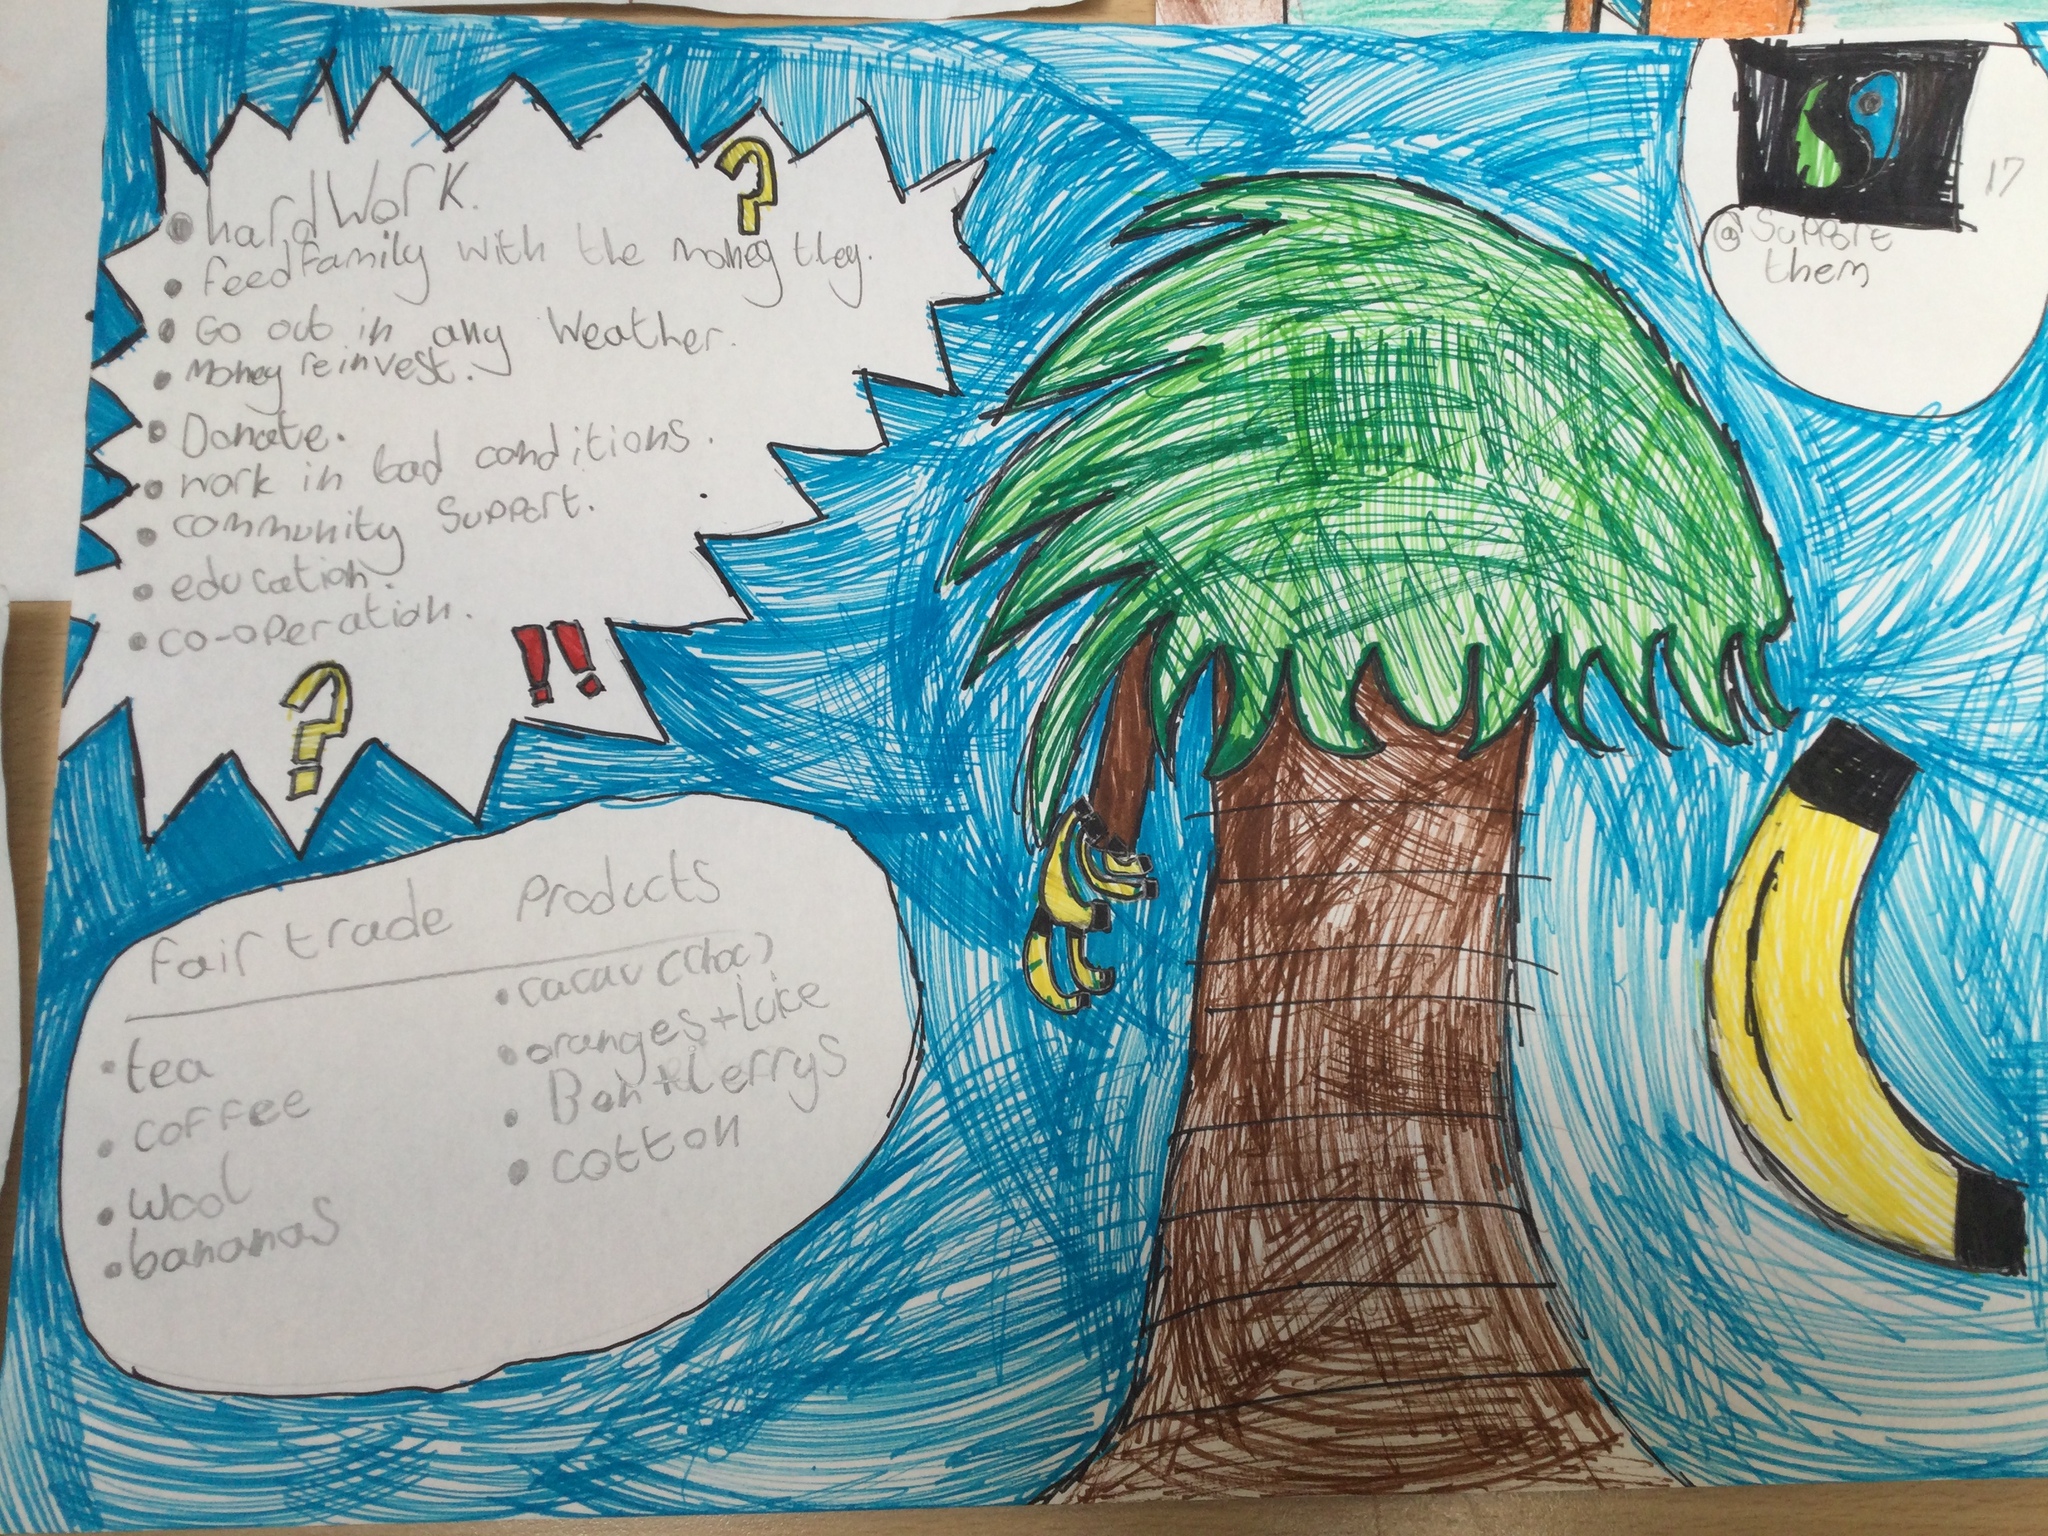 • hard Work.
• feed family with the money they.
• Go out in any Weather.
• Money reinvest.
• Donate.
• work in bad conditions.
• community support.
• education.
• co-operation.
?
?
!!
fair trade Products
• tea
• coffee
• wool
• bananas
• cacav (choc)
• oranges + Juice
• Ben + Jerrys
• cotton
17
@ Support
them